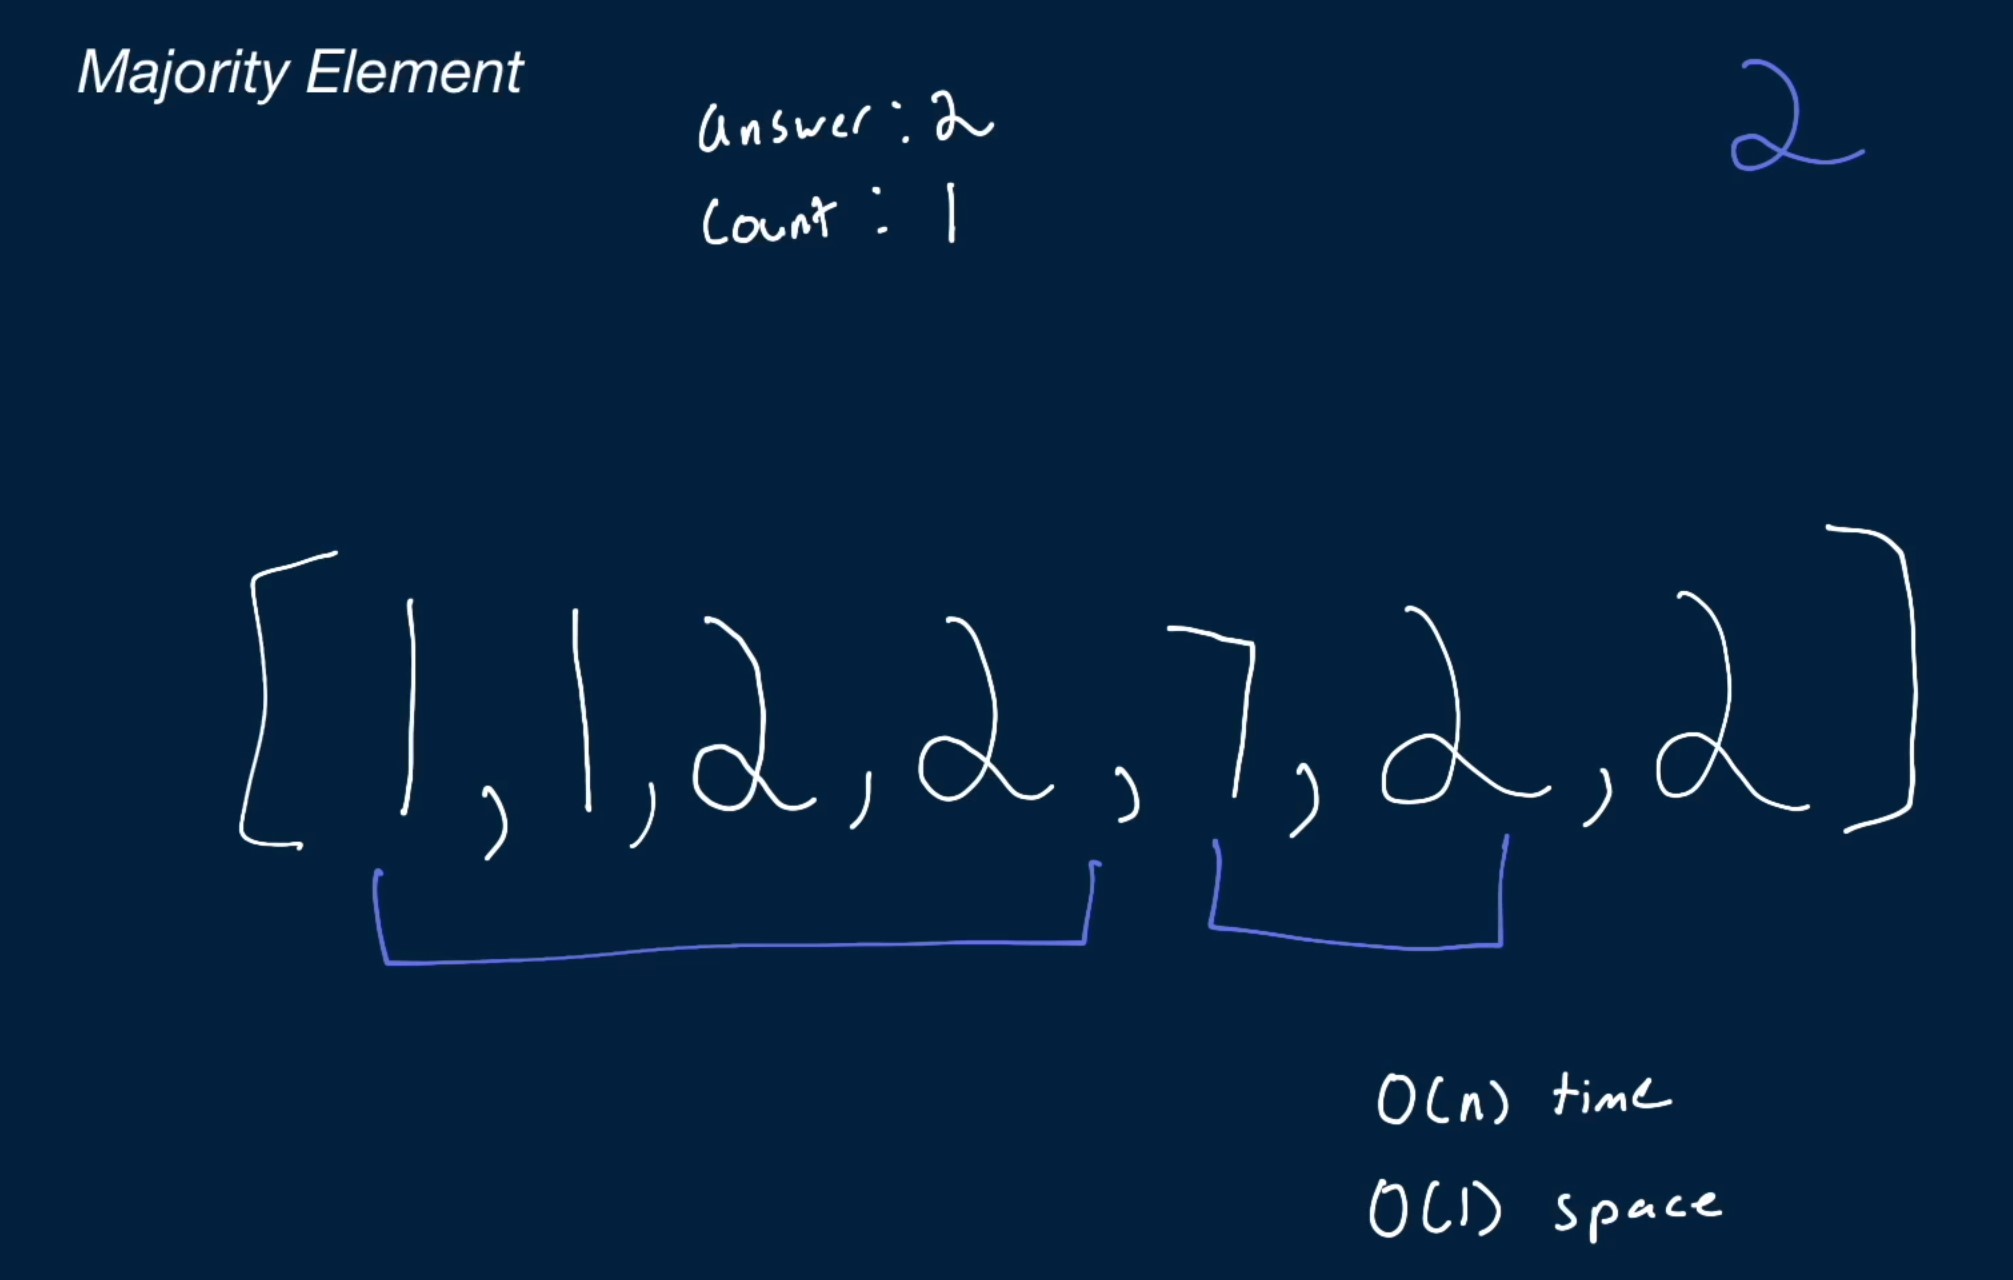 Majority Element
answer: 2
Count: 1
2
[1, 1, 2, 2, 7, 2, 2]
O(n) time
O(1) space